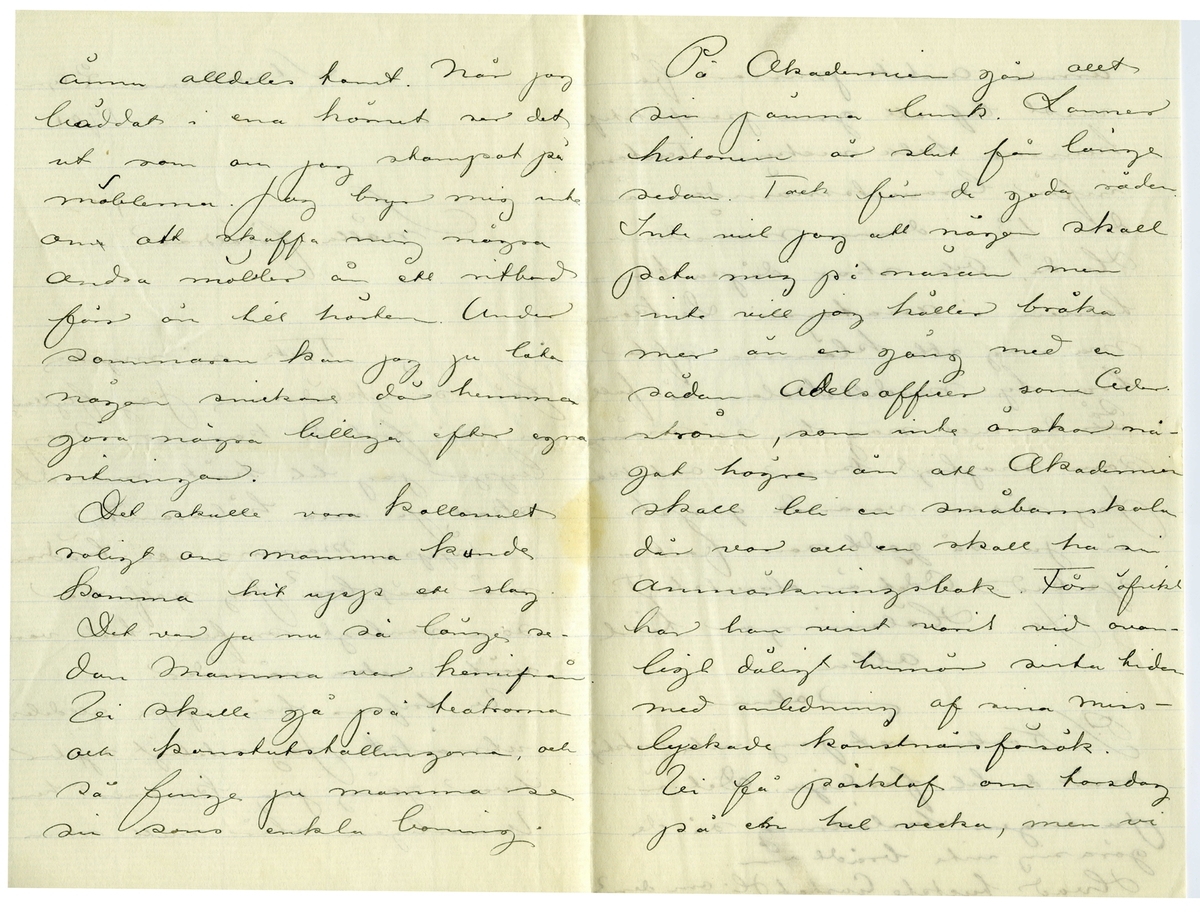 ännu alldeles tomt. När jag
bäddat i ena hörnet ser det
ut som om jag stampat på
möblerna. Jag bryr mig inte
om att skaffa mig några
andra möbler än ett ritbord
förr än till hösten. Under
sommaren kan jag ju låta
någon snickare där hemma
göra några billiga efter egna
ritningar.
Det skulle vara kollosalt
roligt om mamma kunde
komma hit upp ett slag.
Det var ju nu så länge se-
dan Mamma var hemifrån.
Vi skulle gå på teatrarna
och konstutställningarna, och
så finge ju mamma se
sin sons enkla boning.
På Akademien går allt
sin jämna lunk.
historien är slut för länge
sedan. Tack för de goda råden.
Inte vill jag att någon skall
peta mig på näsan men
inte vill jag häller bråka
mer än en gång med en
sådan Adelsofficer som Ceder-
ström, som inte önskar nå-
got högre än att Akademien
skall bli en småbarnskola
där var och en skall ha sin
anmärkningsbok. För öfrikt
har han visst varit vid ovan-
ligt dåligt humör sista tiden
med anledning af sina miss-
lyckade konstnärsförsök.
Vi få påsklof om torsdag
på en hel vecka, men vi